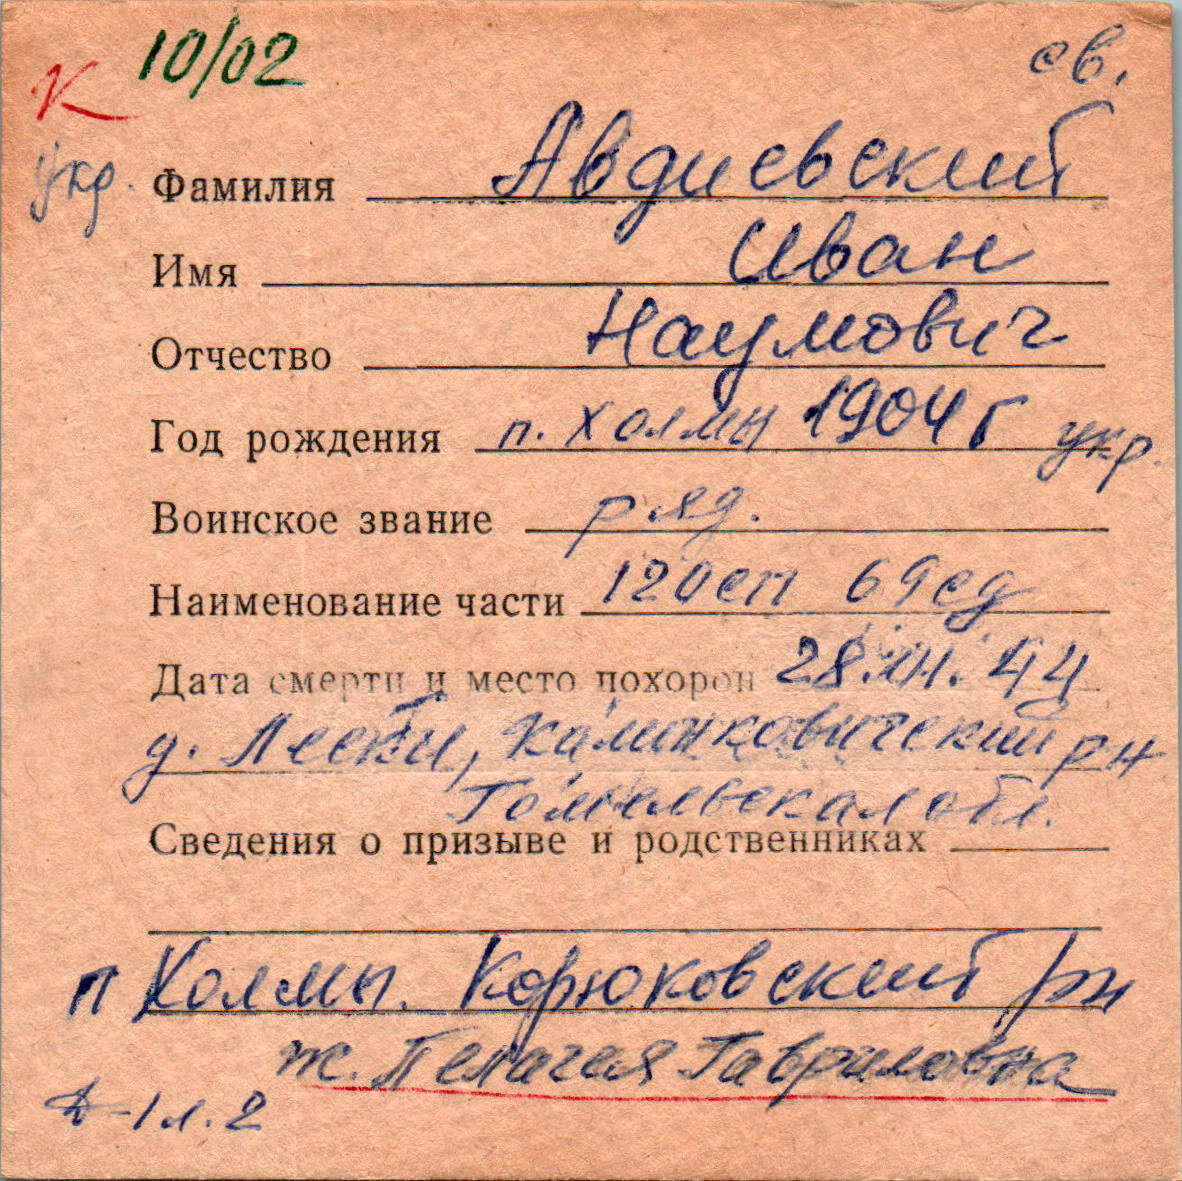 К 10/02 св.
укр. Фамилия Авдиевский
Имя Иван
Отчество Наумович
Год рождения п. Холмы 1904 г укр.
Воинское звание ряд.
Наименование части 120сп 69сд
Дата смерти и место похорон 28.01.44
д. Лески, Калинковичский р-н
Гомельская обл.
Сведения о призыве и родственниках
п Холмы. Корюковский рн
ж. Пелагея Гавриловна
Д-1 л. 2